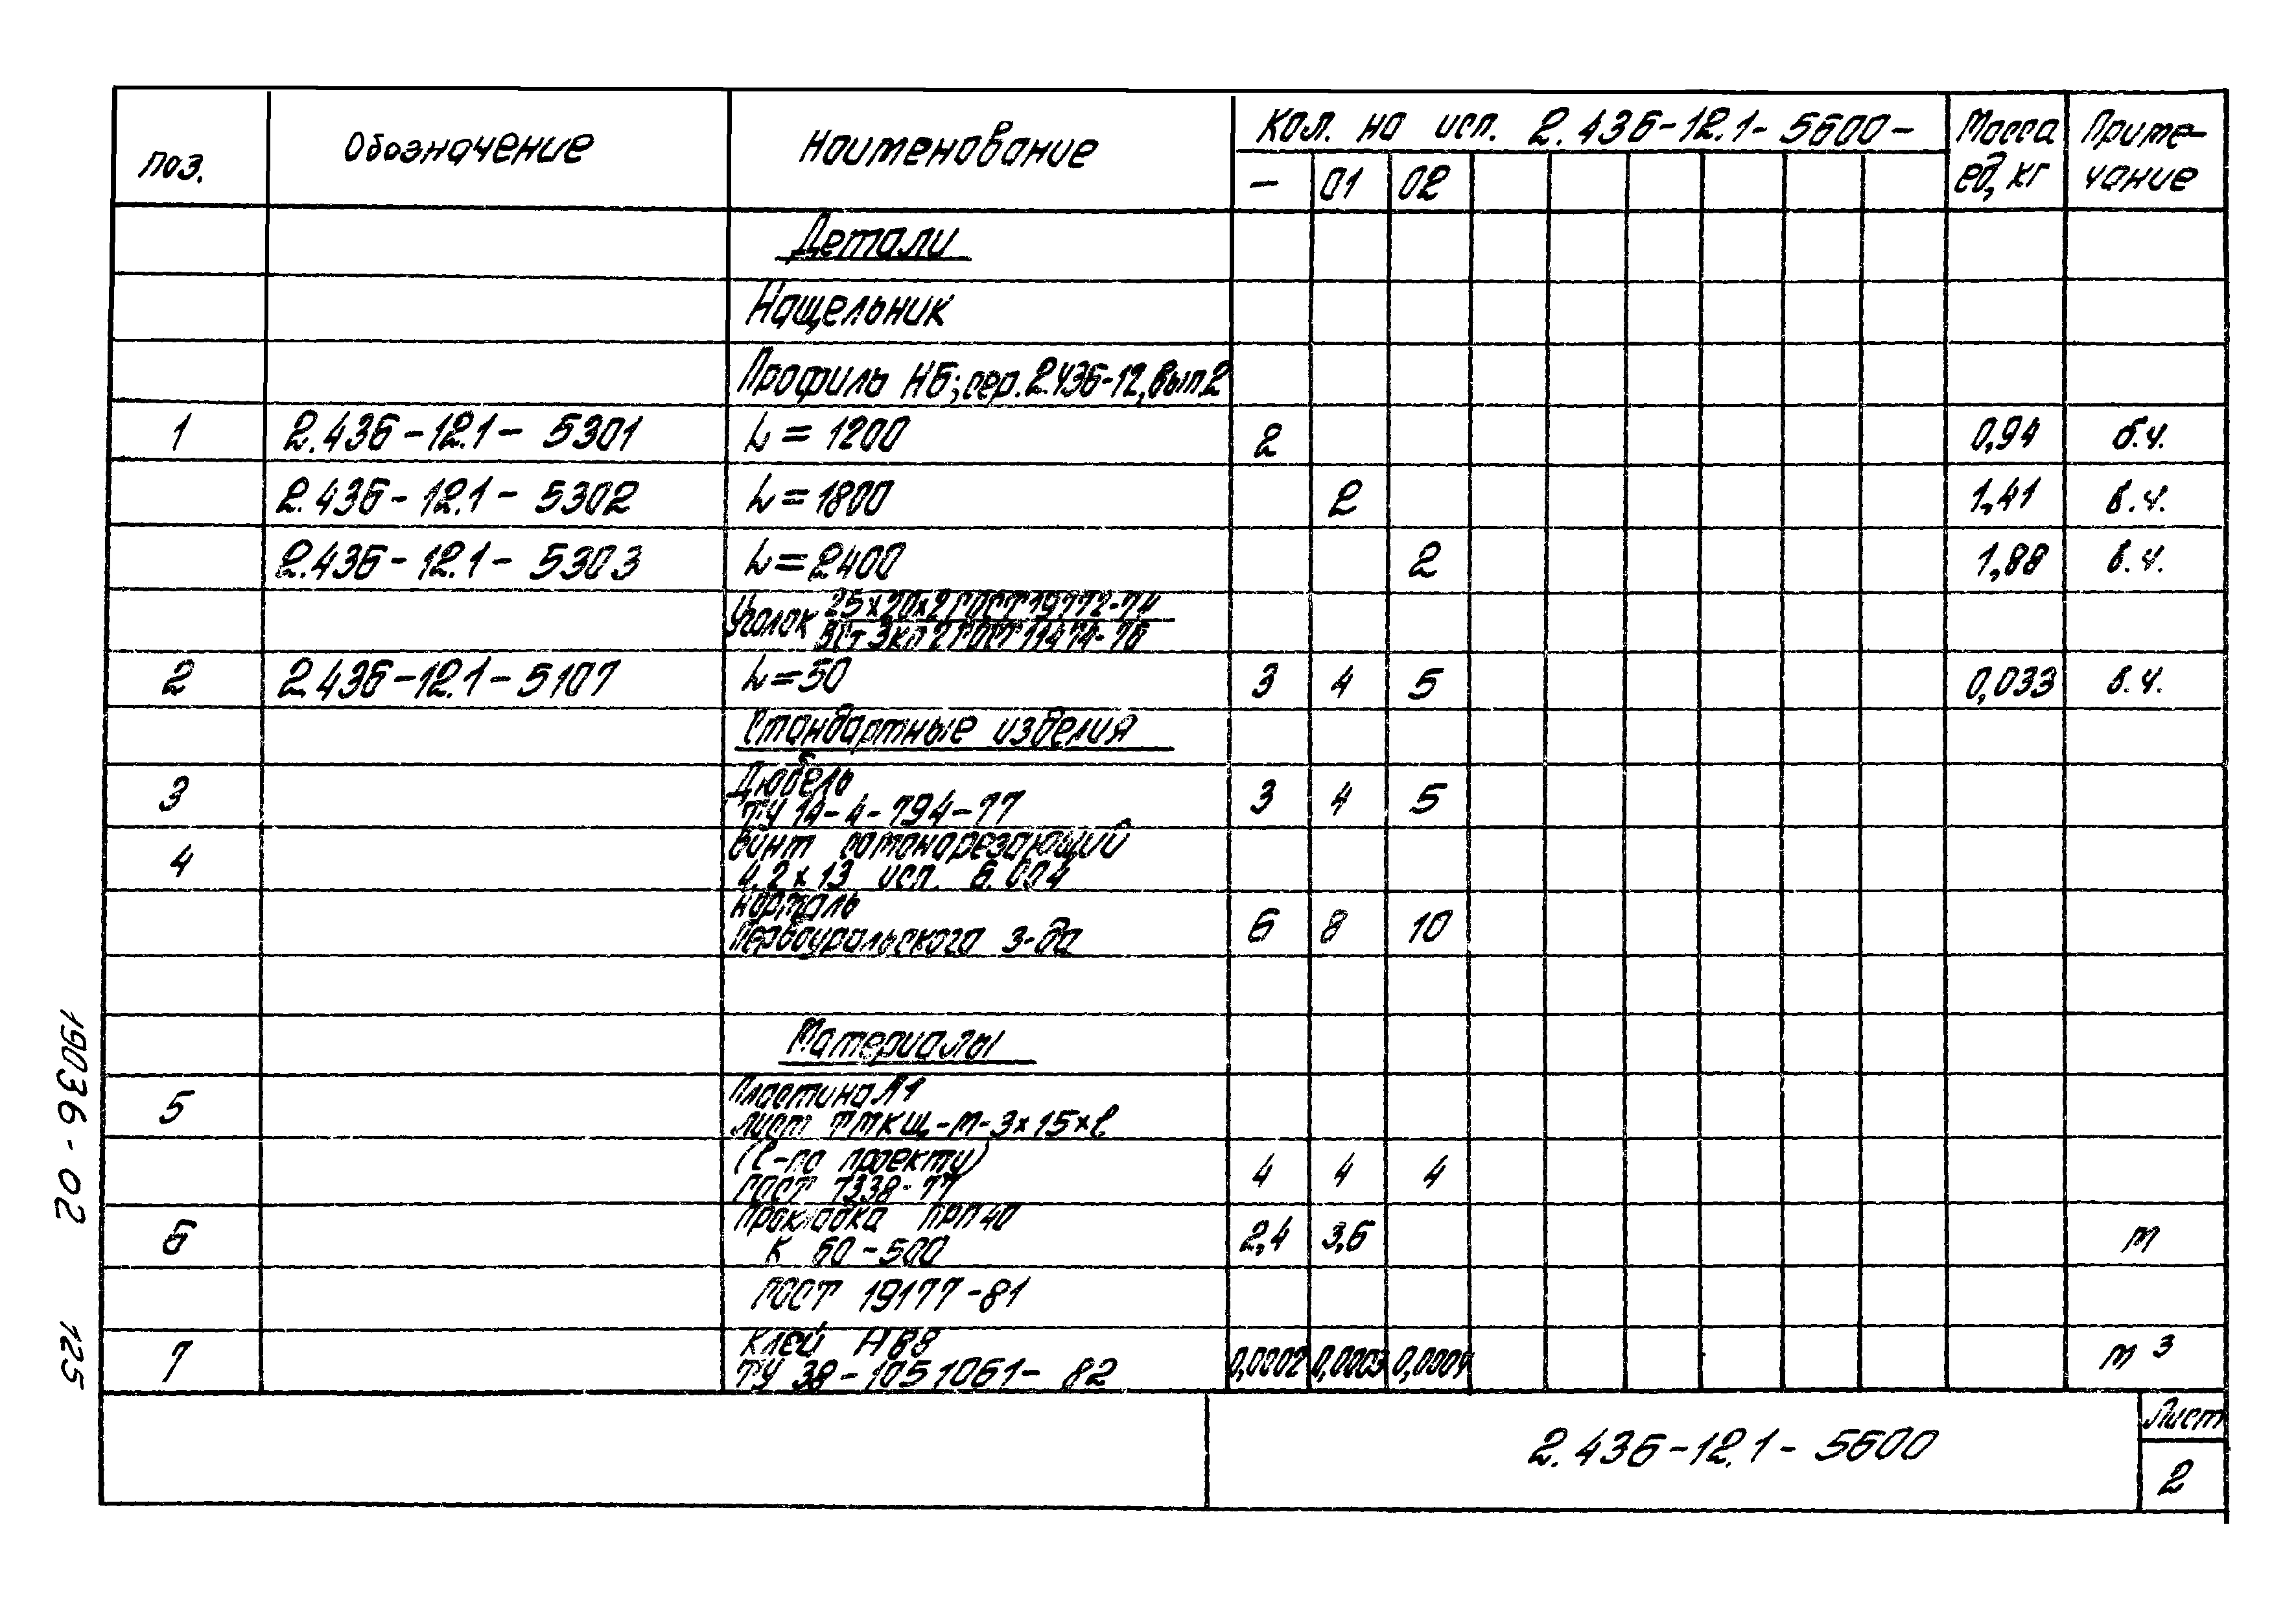 поз.
Обозначение
Наименование
Кол. на исп. 2.436-12.1-5600-
Масса ед, кг
Приме-
чание
- 01 02
Детали
Нащельник
Профиль Н6; сер. 2.436-12, вып.2
1 2.436-12.1-5301 L=1200 2 0,94 б.ч.
2.436-12.1-5302 L=1800 2 1,41 б.ч.
2.436-12.1-5303 L=2400 2 1,88 б.ч.
Уголок 25х20х2 ГОСТ 19772-74
ВСт 3кп2 ГОСТ 11474-76
2 2.436-12.1-5107 L=50 3 4 5 0,033 б.ч.
Стандартные изделия
3 Дюбель
ТУ 14-4-794-77 3 4 5
4 Винт самонарезающий
4,2х13 исп. 6.004
нормаль
Первоуральского з-да 6 8 10
Материалы
5 Пластина П1
лист ТМКЩ-М-3х15хℓ
(ℓ-по проекту)
ГОСТ 7338-77 4 4 4
6 Прокладка ПРП 40
К 60-500 2,4 3,6 м
ГОСТ 19177-81
7 Клей Н88
ТУ 38-1051061-82 0,0002 0,0003 0,0004 м³
2.436-12.1-5600
Лист
2
19036-02 125